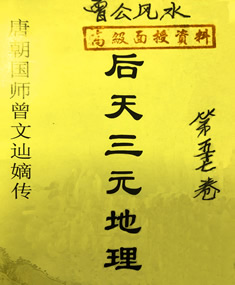 曾公风水
高级面授资料
唐朝国师曾文辿嫡传
后天三元地理
第五七卷